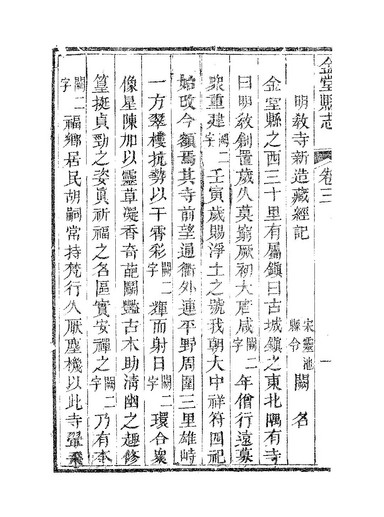 金堂縣志 卷三 一
明教寺新造藏經記
宋靈池
縣令 闕名
金堂縣之西三十里有屬鎮曰古城鎮之東北隅有寺
曰明教創置歲久莫窮厥初大唐咸闕二字年僧行遠募
眾重建闕二字壬寅歲賜淨土之號我朝大中祥符四祀
始改今額焉其寺前望通衢外連平野周圍三里雄峙
一方翠樓抗勢以干霄彩闕二字輝而射日闕二字環合眾
像星陳加以靈草凝香奇葩鬬豔古木助清幽之趣修
篁挺貞勁之姿眞祈福之名區實安禪之闕二字乃有本
闕二字福鄉居民胡嗣常持梵行久厭塵機以此寺翬飛